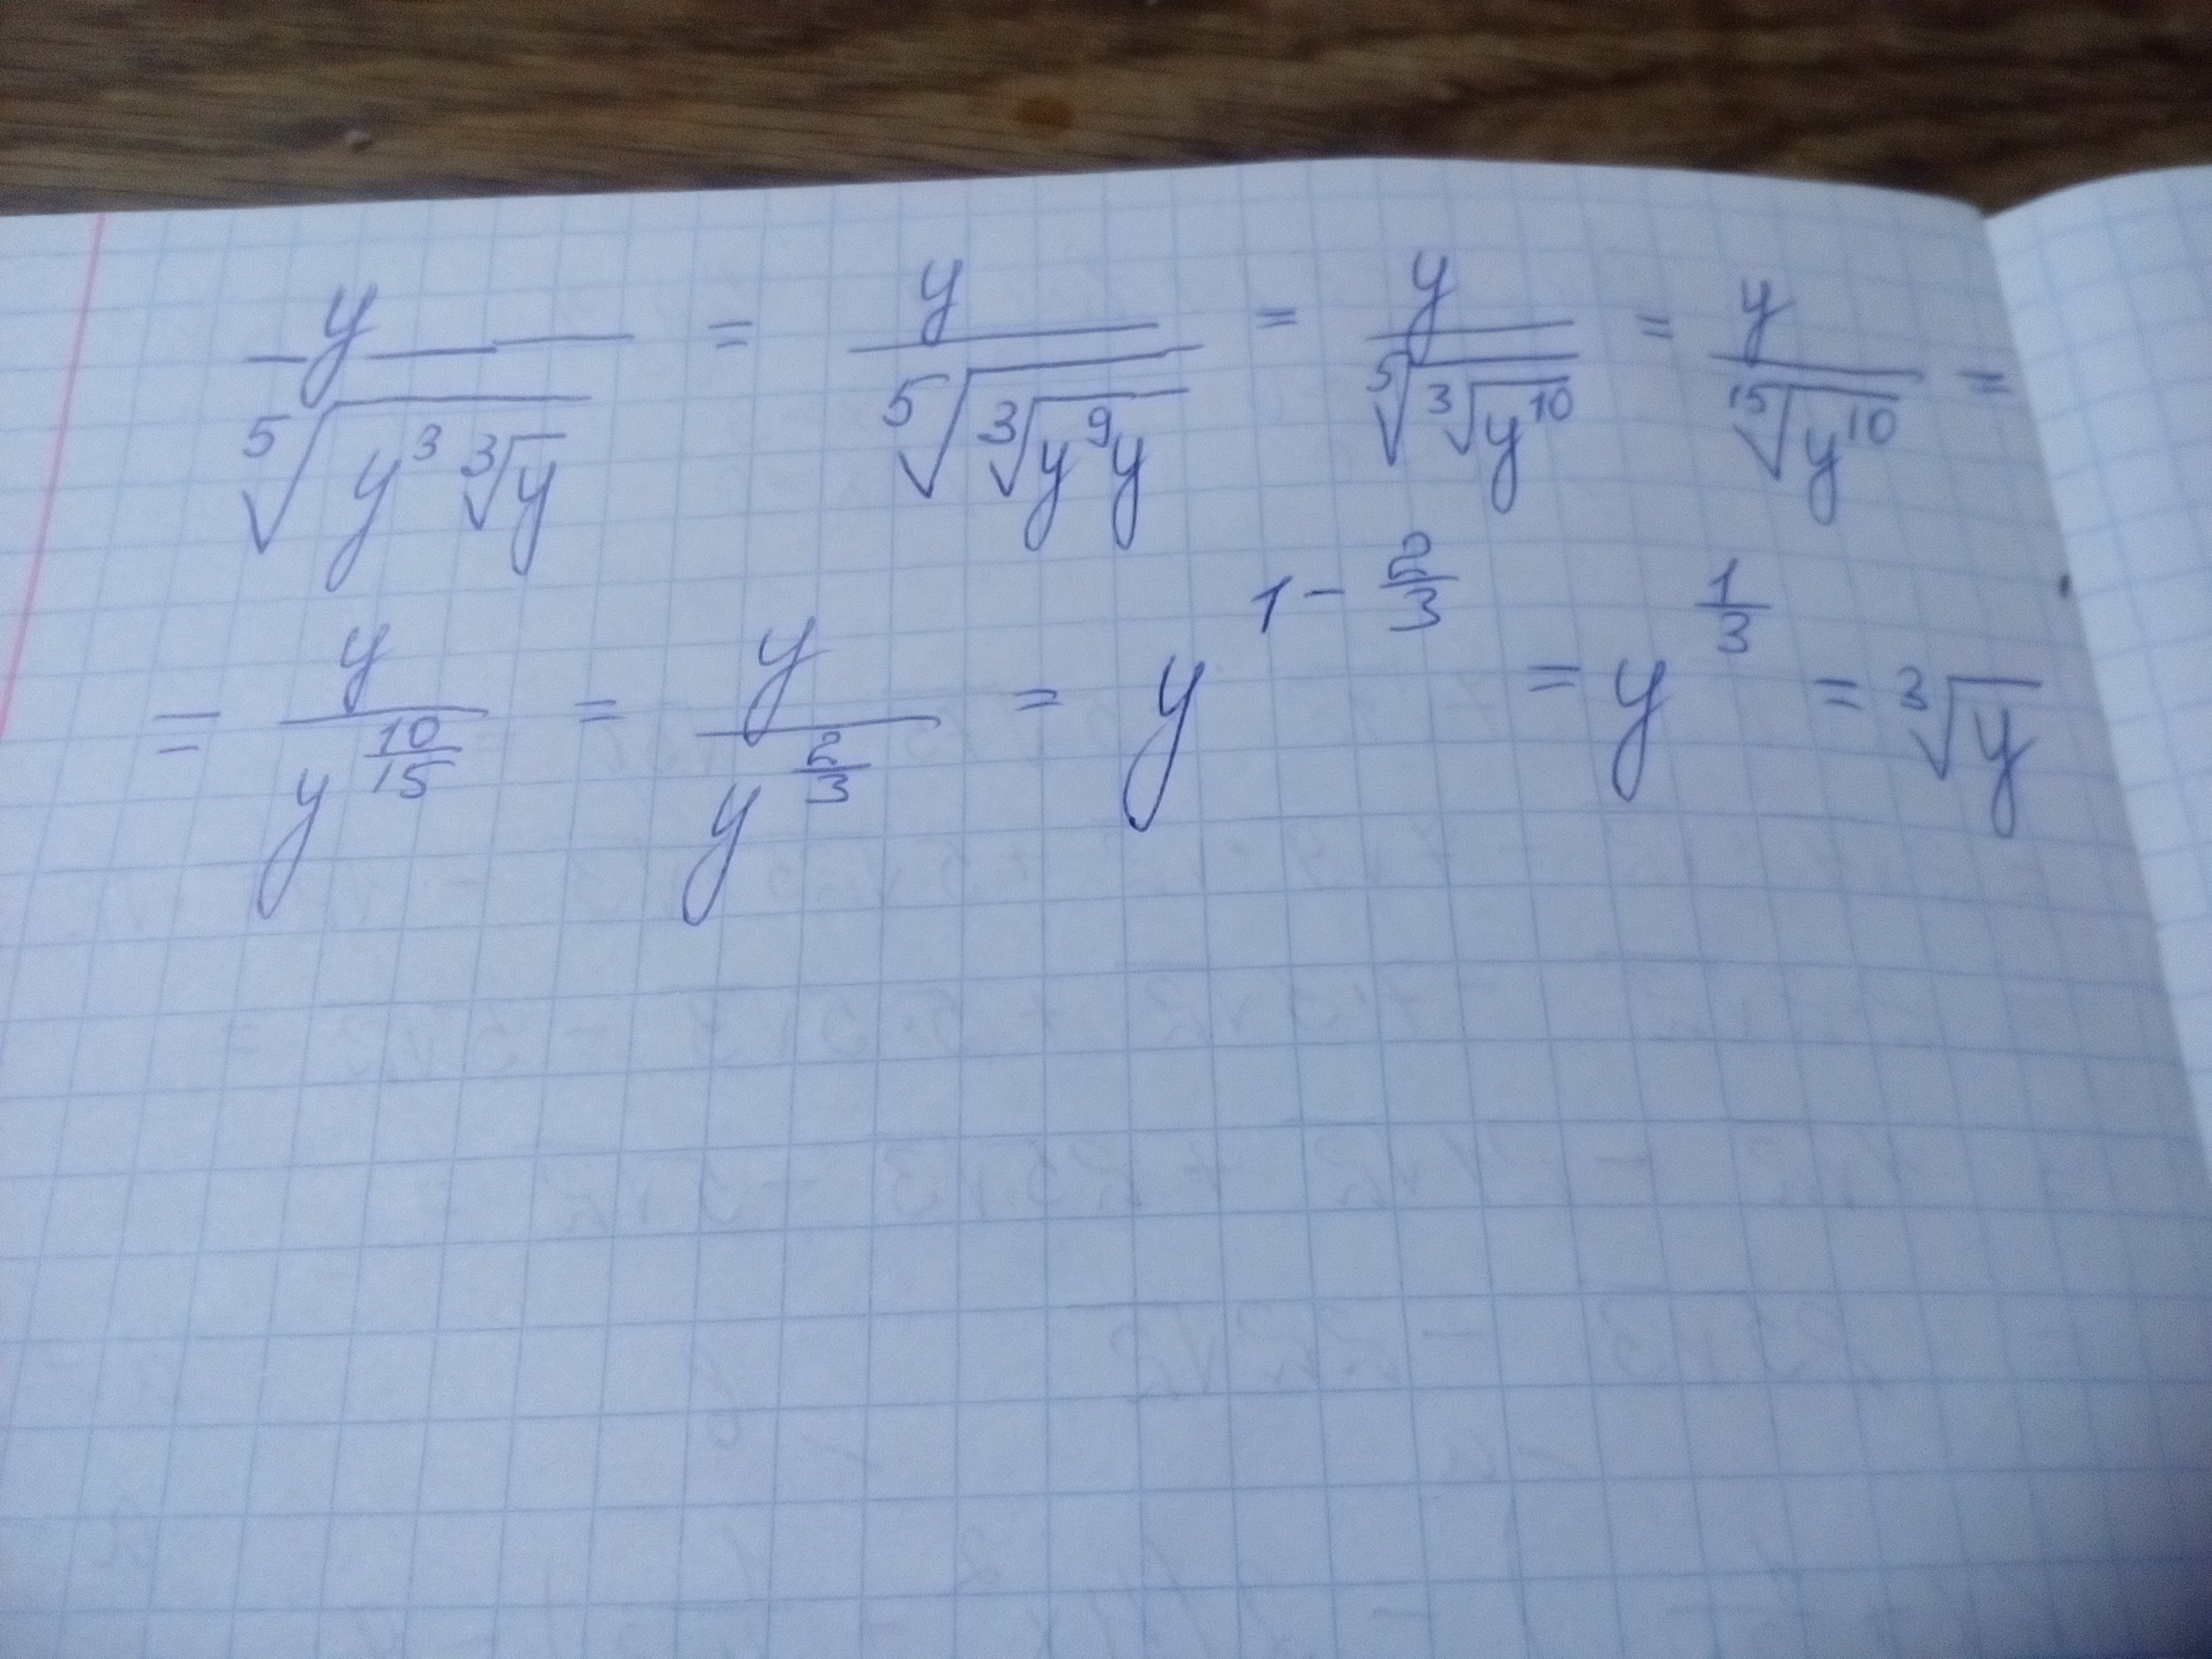 $\frac{y}{\sqrt[5]{y^3 \sqrt[3]{y}}} = \frac{y}{\sqrt[5]{\sqrt[3]{y^9 y}}} = \frac{y}{\sqrt[5]{\sqrt[3]{y^{10}}}} = \frac{y}{\sqrt[15]{y^{10}}} =$
$= \frac{y}{y^{\frac{10}{15}}} = \frac{y}{y^{\frac{2}{3}}} = y^{1 - \frac{2}{3}} = y^{\frac{1}{3}} = \sqrt[3]{y}$